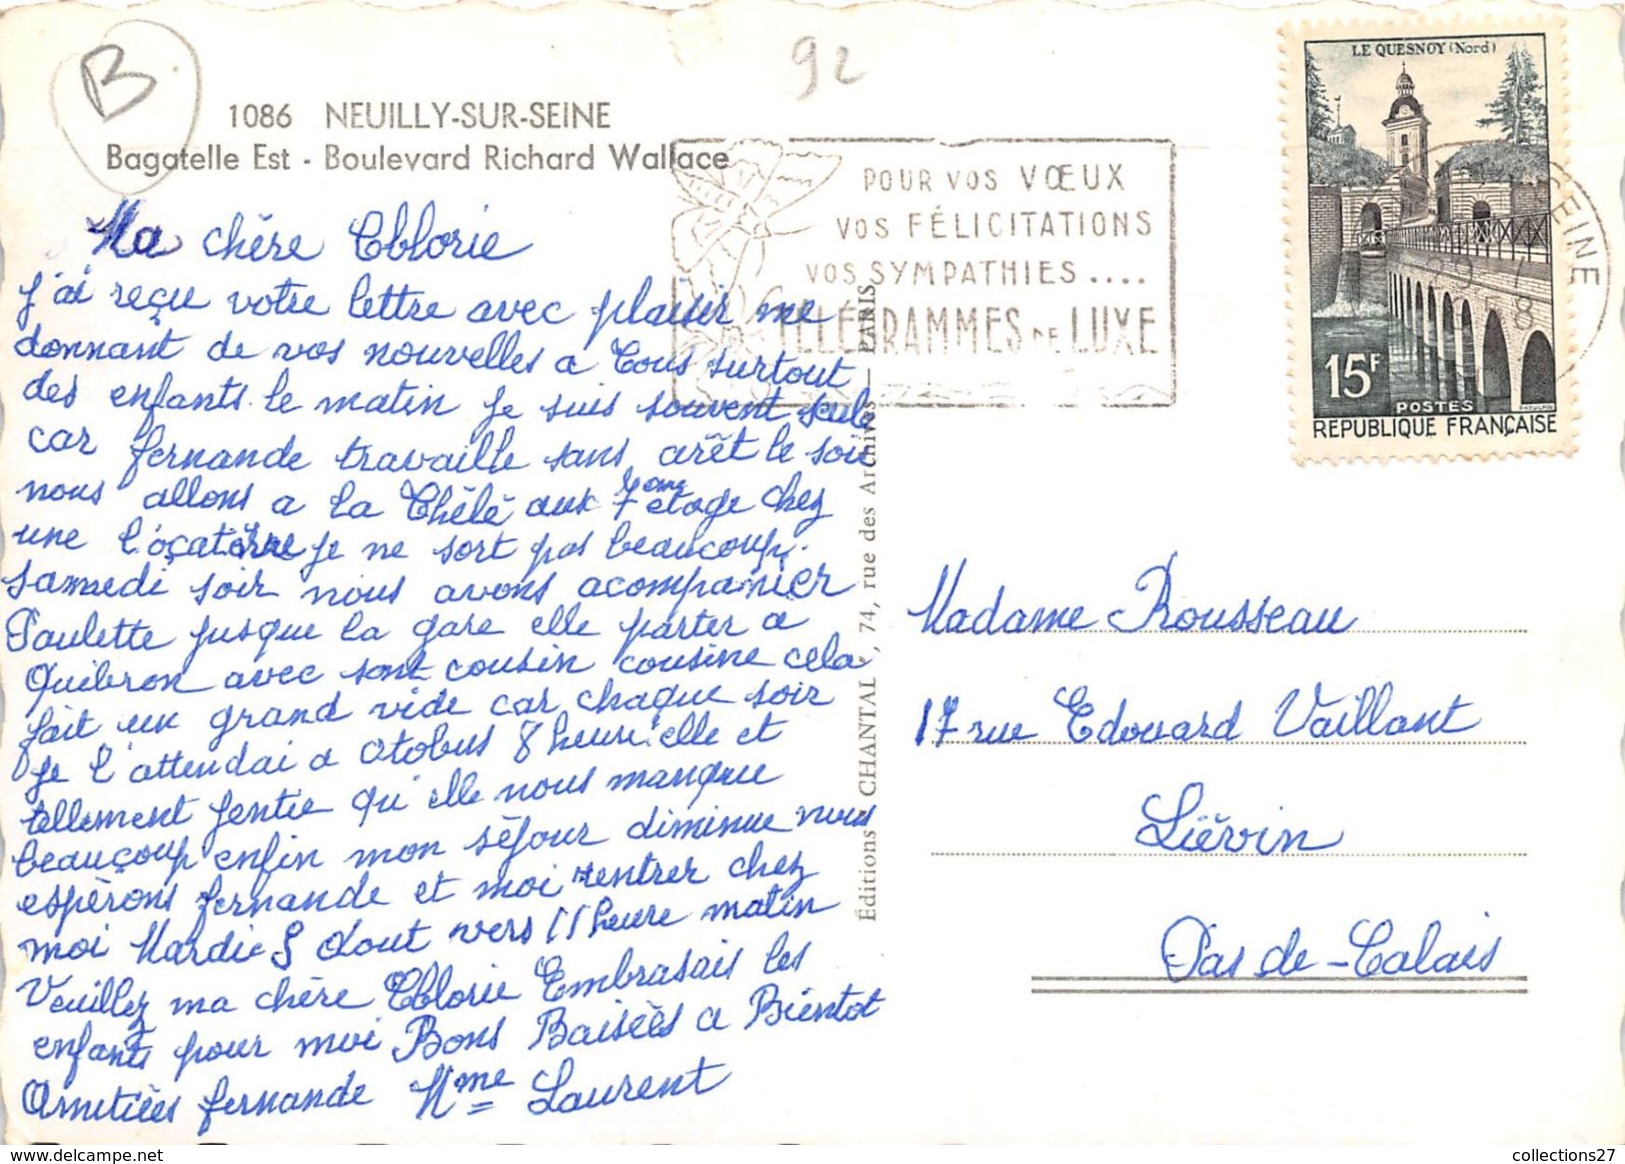 B
92
1086 NEUILLY-SUR-SEINE
Bagatelle Est - Boulevard Richard Wallace
Ma chère
j'ai reçu votre lettre avec plaisir me
donnant de vos nouvelles a Tous surtout
des enfants. le matin je suis souvent seule
car fernande travaille sans arêt le soir
nous allons a la Thélé aux 7ème étage chez
une je ne sort pas beaucoup.
samedi soir nous avons acompanier
Paulette jusque la gare elle parter a
Quibron avec sont cousin cousine cela
fait un grand vide car chaque soir
je l'attendai a otobus 8 heure. elle et
tellement jentie qu'elle nous manque
beauçoup enfin mon séjour diminue nous
espèrons fernande et moi rentrer chez
moi Mardie 5 Aout vers 11 heure matin
Veuillez ma chère Embrasais les
enfants pour moi Bons Baisèes a Bientot
Amitiées fernande Mme Laurent
POUR VOS VŒUX
VOS FÉLICITATIONS
VOS SYMPATHIES ....
TÉLÉGRAMMES DE LUXE
Éditions "CHANTAL", 74, rue des Archives — PARIS
LE QUESNOY (Nord)
15F
POSTES
REPUBLIQUE FRANÇAISE
SEINE
Madame Rousseau
17 rue Edouard Vaillant
Liévin
Pas de-Calais
collections27